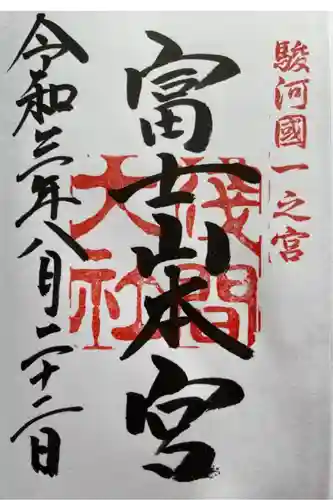 駿河國一之宮
富士山本宮
淺間大社
令和三年八月二十二日